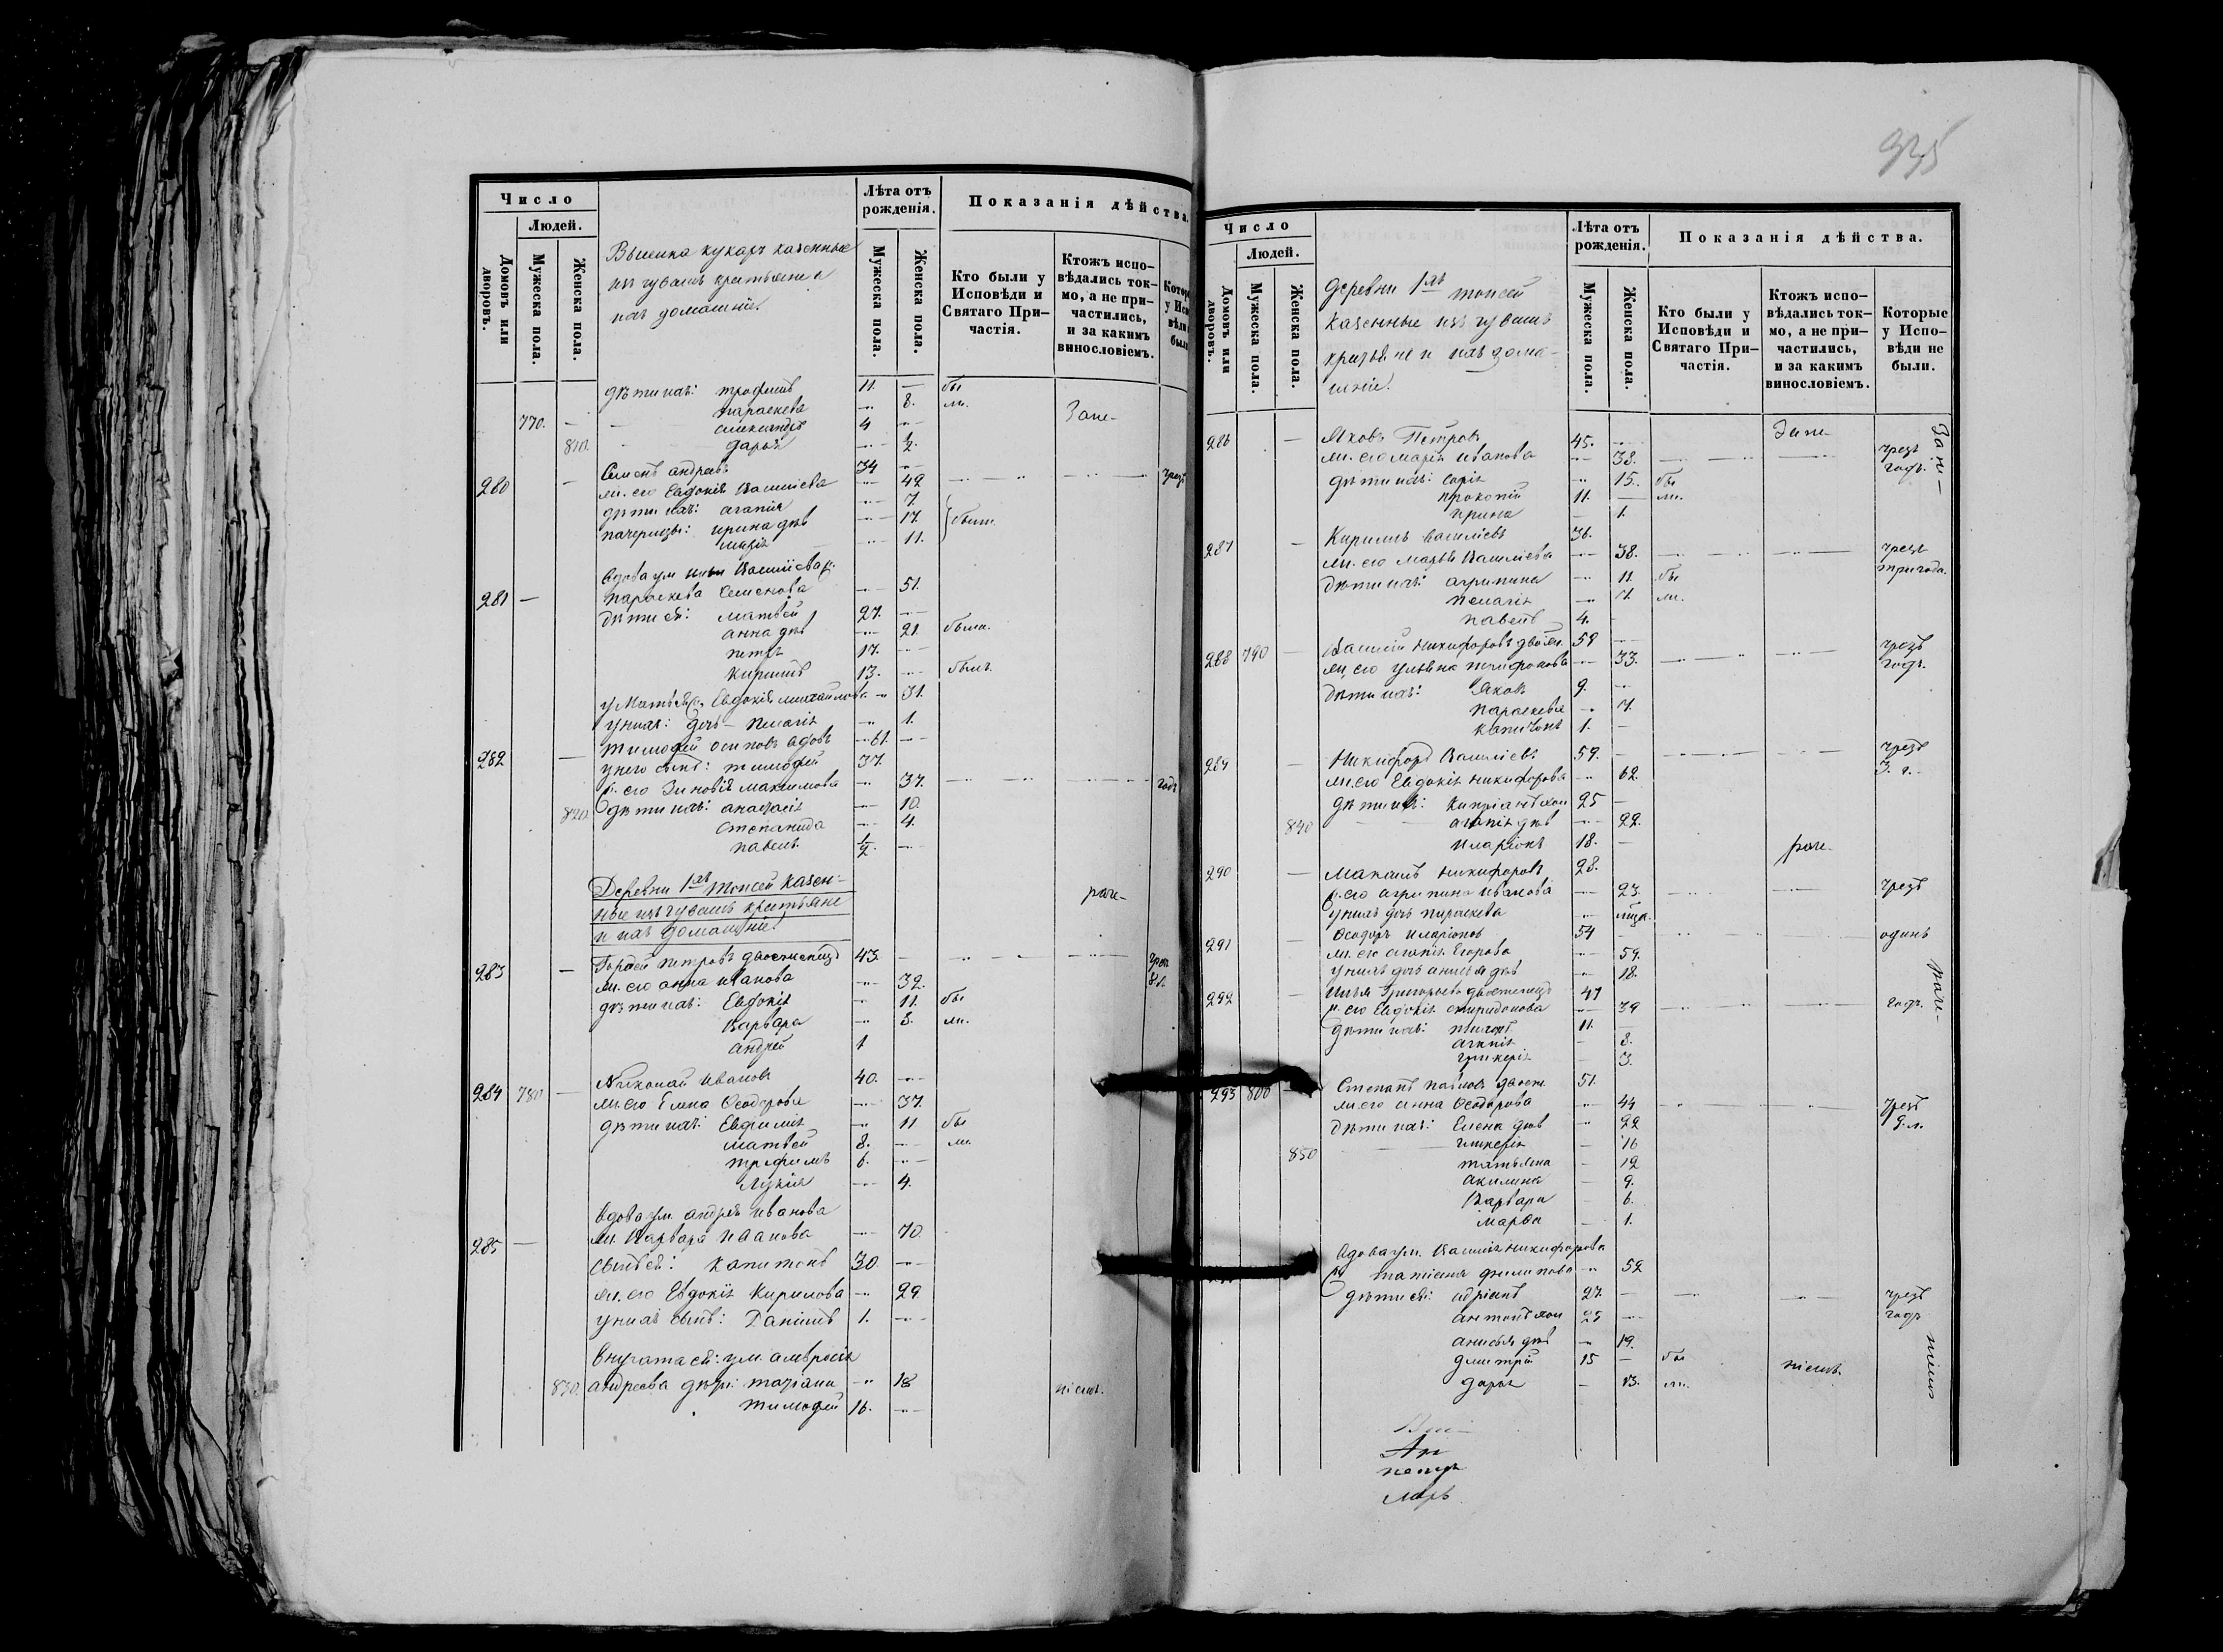 935
Число
Людей.
Домовъ или дворовъ.
Мужеска пола.
Женска пола.
казенные
изъ чувашъ крестьяне и
ихъ домашніе.
Лѣта отъ рожденія.
Мужеска пола.
Женска пола.
Показанія дѣйства.
Кто были у Исповѣди и Святаго Причастія.
Ктожъ исповѣдались токмо, а не причастились, и за какимъ винословіемъ.
дѣти ихъ: трофимъ 11. — бы
параскева 8. ли.
770. — александръ 4
810. дарья ½.
280 — Семенъ андреевъ 34
ж. его Евдокія Василіева 42 чрезъ
дѣти ихъ: агапія 7.
падчерицы: ирина дѣв 17. были
11.
Вдова ум Василіева ж.
281 — параскева Семенова 51.
дѣти ея: матвей 27.
анна дѣв 21. были.
петръ 17.
Кирилъ 13. былъ.
у Матвѣя ж. Евдокія михайлова 31.
у нихъ: дочь — пелагія 1.
282 — тимофей осиповъ вдовъ 61.
у него сынъ: тимофей 37.
ж. его Зиновія максимова 37. годъ
820. дѣти ихъ: анастасія 10.
степанида 4.
павелъ ½.
Деревни 1хъ тоисей казен-
ные изъ чувашъ крестьяне
и ихъ домашніе.
283 — Гордей петровъ двоеженецъ 43. —
ж. его анна иванова 32.
дѣти ихъ: Евдокія 11. бы
Варвара 8. ли.
андрей 1
284 780 — Николай ивановъ 40.
ж. его Елена Ѳеодорова 37.
дѣти ихъ: Евфимія 11 бы
матвей 8. ли.
трофимъ 6.
Лукія 4.
Вдова ум. андрея иванова
285 — ж. Варвара иванова 70.
сынъ ея: капитонъ 30.
ж. его Евдокія Кирилова 29.
у нихъ сынъ: Даніилъ 1.
Внучата ея: ум. амвросія
830. андреева дѣти: маріана 18
тимофей 16.
Число
Людей.
Домовъ или дворовъ.
Мужеска пола.
Женска пола.
деревни 1хъ тоисей
казенные изъ чувашъ
крестьяне и ихъ дома-
шніе.
Лѣта отъ рожденія.
Мужеска пола.
Женска пола.
Показанія дѣйства.
Кто были у Исповѣди и Святаго Причастія.
Ктожъ исповѣдались токмо, а не причастились, и за какимъ винословіемъ.
Которые у Исповѣди не были.
286 — Яковъ Петровъ 45.
ж. его марія иванова 38. чрезъ годъ.
дѣти ихъ: софія 15. бы
прокопій 11. — ли.
ирина — 1.
287 — Кирилъ василіевъ 36.
ж. его марья Василіева 38. чрезъ три года.
дѣти ихъ: агрипина 11. бы
пелагія 7. ли.
павелъ 4. -
288 790 — Василій никифоровъ двоеж. 58
ж. его ульяна 33. чрезъ годъ.
дѣти ихъ: Яковъ 9.
параскева 7.
капитонъ 1. —
289 — Никифоръ Василіевъ 59. — чрезъ 3. г.
ж. его Евдокія никифорова 62.
дѣти ихъ: кипріанъ хол 25 —
840 агапія дѣв 22.
иларіонъ 18. —
290 — Максимъ никифоровъ 28.
ж. его агрипина иванова 23. чрезъ
у нихъ дочь параскева
291 — Ѳеодоръ иларіоновъ 54 — одинъ
ж. его агапія Егорова 59.
у нихъ дочь анисья дѣв 18.
292 — Илья Григорьевъ двоеженецъ 47
ж. его Евдокія спиридонова — 39 годъ.
дѣти ихъ: 11. —
агапія — 8.
гликерія — 3.
293 800 — Степанъ павловъ двоеж. 51.
ж. его анна Ѳеодорова 44 чрезъ 9. л.
дѣти ихъ: Елена дѣв 22
850 гликерія — 16
татьяна — 12
акилина — 9.
Варвара — 6.
марѳа — 1.
Вдова ум. Василія никифорова
ж. татіана филипова 52
дѣти ея: адріанъ 27. — чрезъ
антонъ хол 25 годъ
анисья дѣв 19.
дмитрій 15 — бы
дарья — 13. ли.
Ар